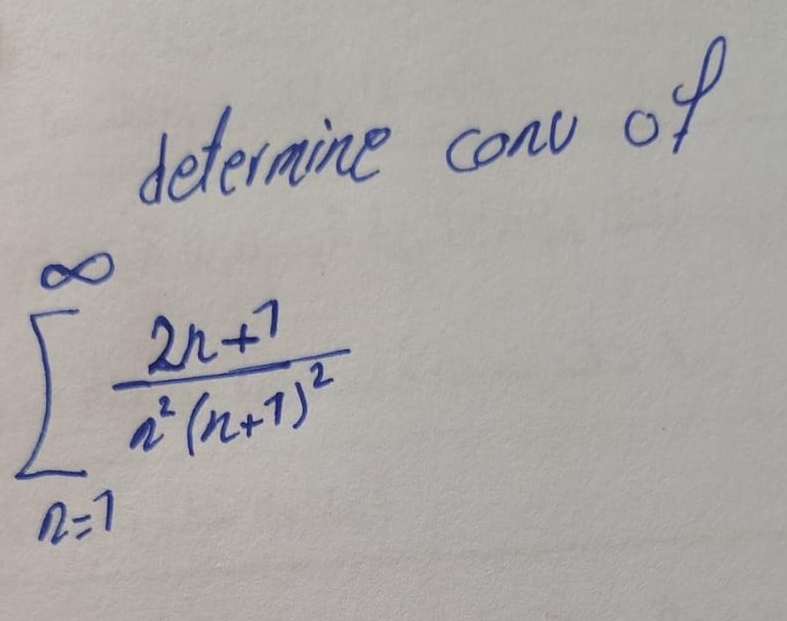 determine conv of
∞
∑ 2n+1 / n²(n+1)²
n=1